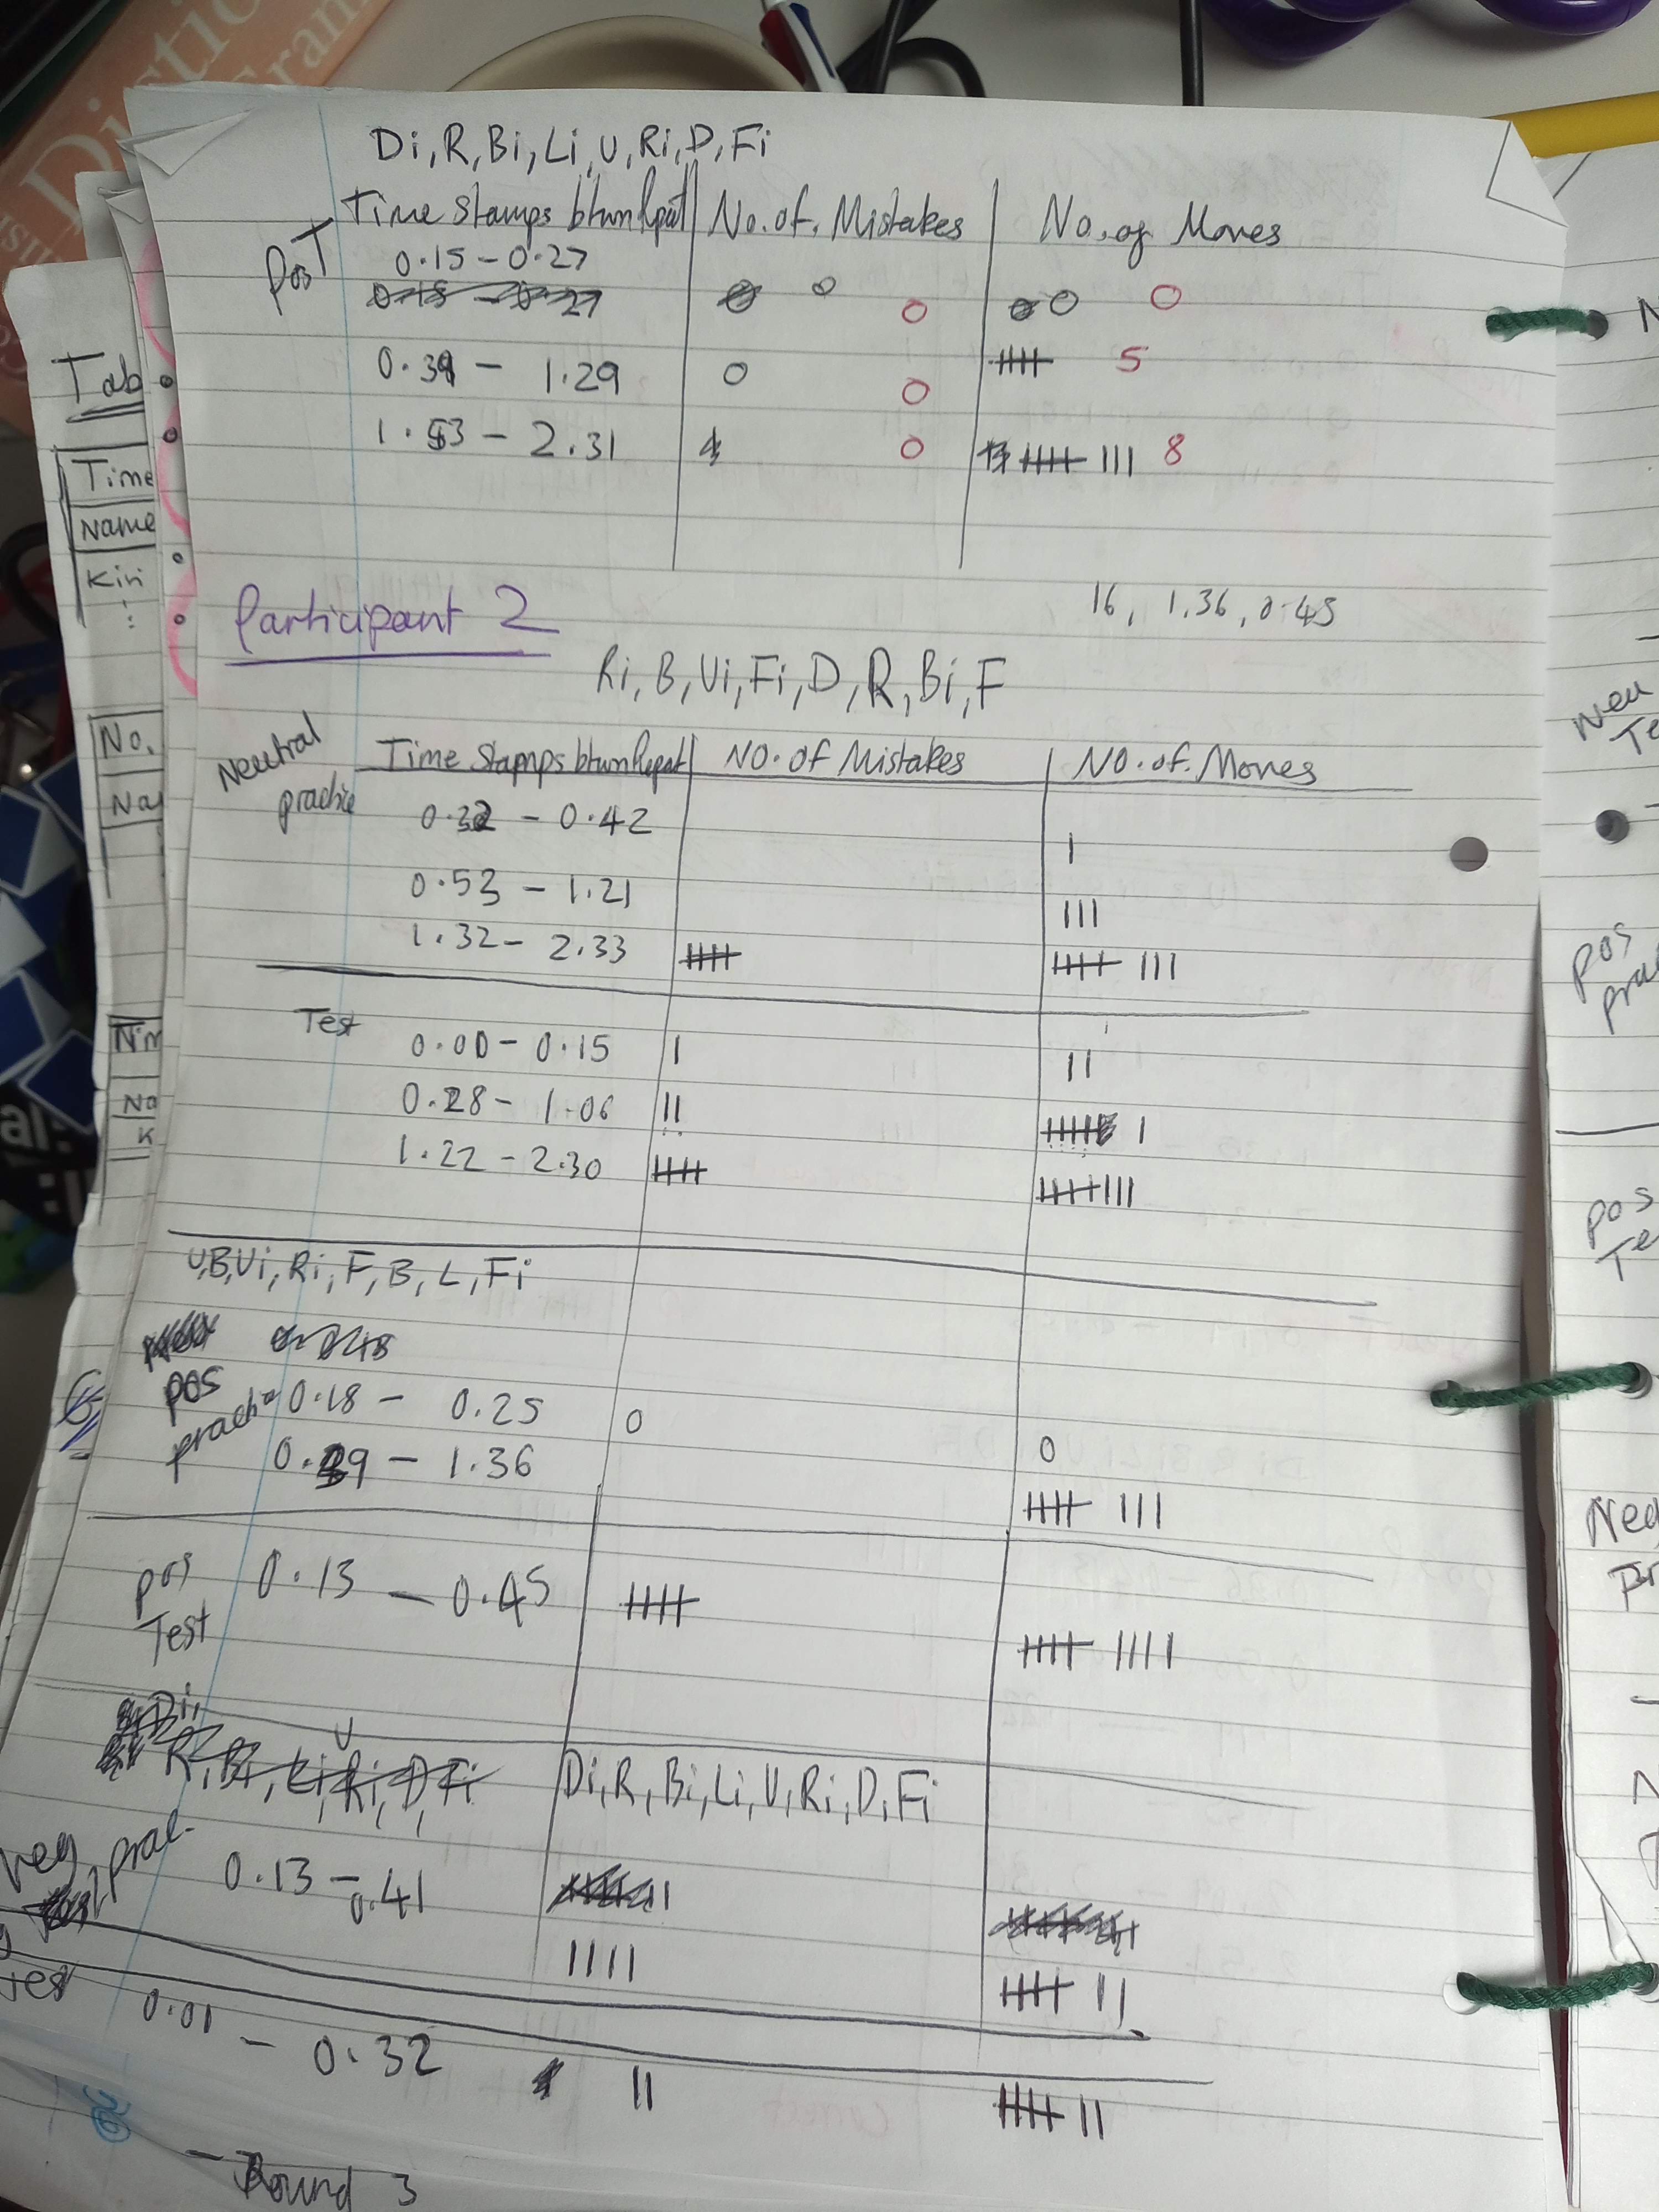 Di, R, Bi, Li, U, Ri, D, Fi
Time Stamps btwn Repat | No. of. Mistakes | No. of Moves
Pos T
0.15 - 0.27 0 0 0 0
0.39 - 1.29 0 0 卌 5
1.53 - 2.31 0 卌 III 8
Participant 2
16, 1.36, 0.45
Ri, B, Ui, Fi, D, R, Bi, F
Neutral practice
Time Stamps btwn Repat | NO. of Mistakes | NO. of. Moves
0.32 - 0.42 I
0.53 - 1.21 III
1.32 - 2.33 卌 卌 III
Test
0.00 - 0.15 I II
0.28 - 1.06 II 卌 I
1.22 - 2.30 卌 卌 III
U, B, Ui, Ri, F, B, L, Fi
pos practice
0.18 - 0.25 0 0
0.39 - 1.36 卌 III
pos Test
0.13 - 0.45 卌 卌 IIII
Di,
R, Bi, Li, U Ri, D, Fi
Di, R, Bi, Li, U, Ri, D, Fi
Neg prac.
0.13 - 0.41 IIII 卌 II
Test
0.01 - 0.32 II 卌 II
- Round 3
Tab
Time
Name
Kiri
No.
Na
No
K
Neu
Te
pos
prac
pos
Te
Neg
Pr
Dictio
Gram